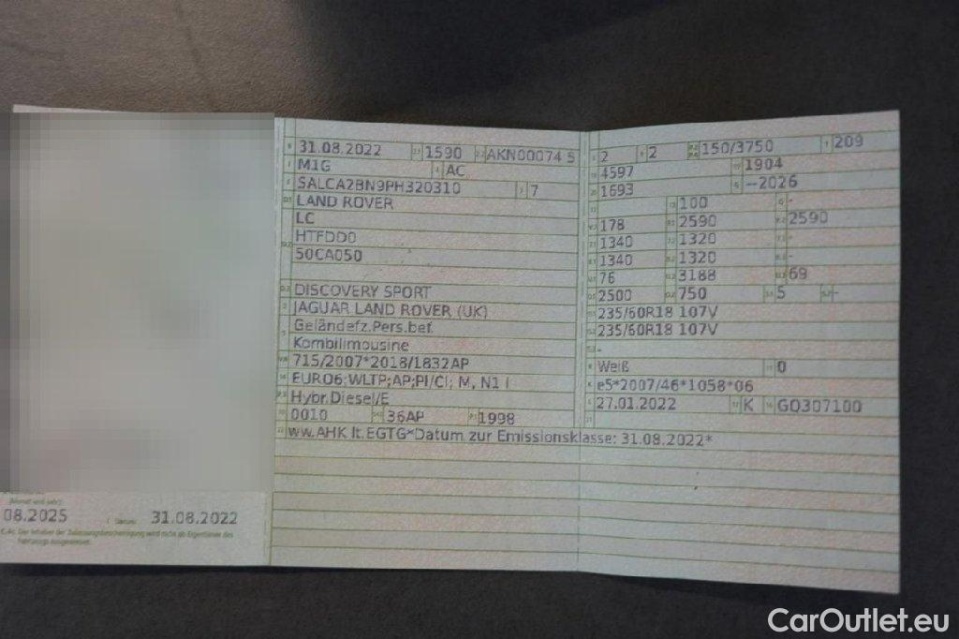 31.08.2022 1590 AKN00074 5
M1G AC
SALCA2BN9PH320310 7
LAND ROVER
LC
HTFDD0
50CA050
DISCOVERY SPORT
JAGUAR LAND ROVER (UK)
Geländefz.Pers.bef.
Kombilimousine
715/2007*2018/1832AP
EURO6;WLTP;AP;PI/CI; M, N1 I
Hybr.Diesel/E
0010 36AP 1998
ww.AHK lt.EGTG*Datum zur Emissionsklasse: 31.08.2022*
2 2 150/3750 209
4597 1904
1693 —2026
100 -
178 2590 2590
1340 1320 -
1340 1320 -
76 3188 69
2500 750 5 -
235/60R18 107V
235/60R18 107V
-
Weiß 0
e5*2007/46*1058*06
27.01.2022 K GQ307100
08.2025 31.08.2022
CarOutlet.eu